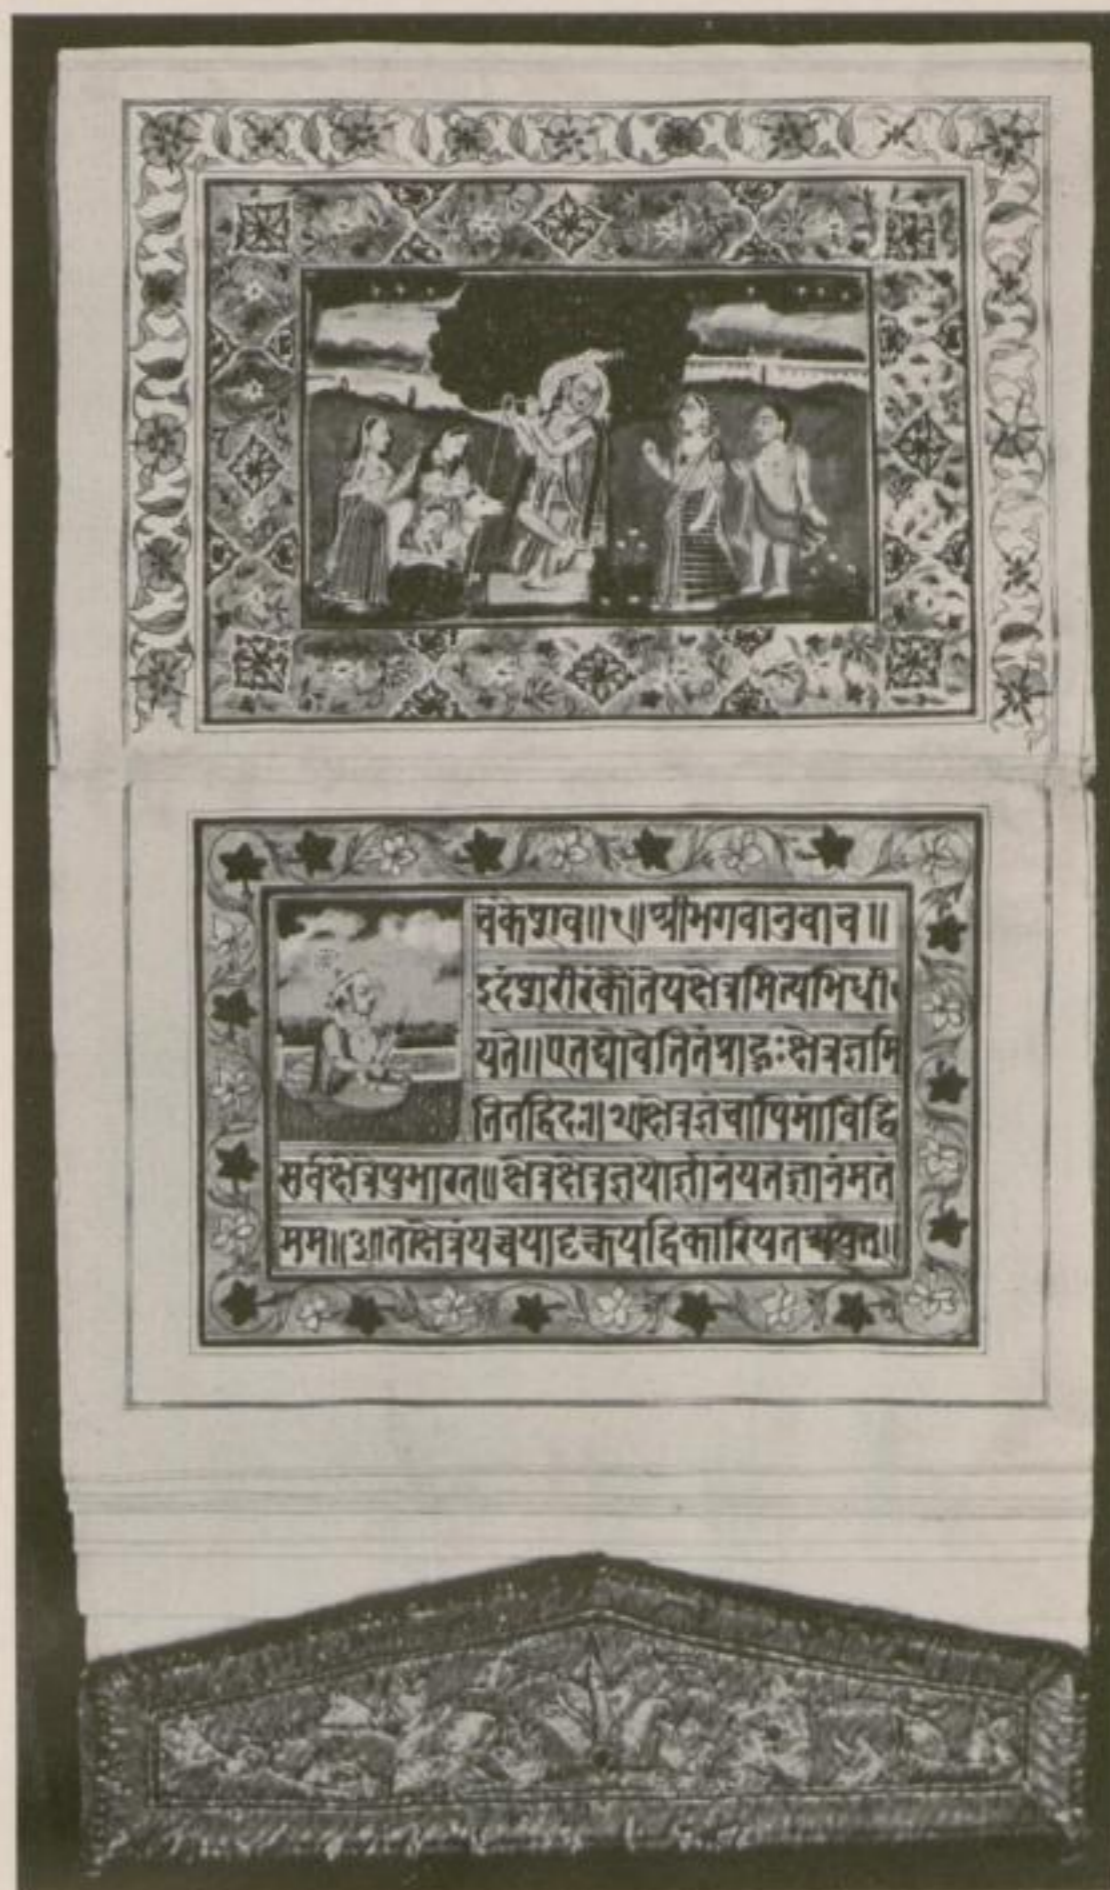 चकेशव॥१॥श्रीभगवानुवाच॥
इदंशरीरंकौंतेयक्षेत्रमित्यभिधी
यते॥एतद्योवेत्तितंप्राहुःक्षेत्रज्ञमि
तितद्विदः॥२॥क्षेत्रज्ञंचापिमांविद्धि
सर्वक्षेत्रेषुभारत॥क्षेत्रक्षेत्रज्ञयोर्ज्ञानंयतज्ञानंमतं
मम॥३॥तत्क्षेत्रंयच्चयादृक्चयद्विकारियतश्चयत्॥